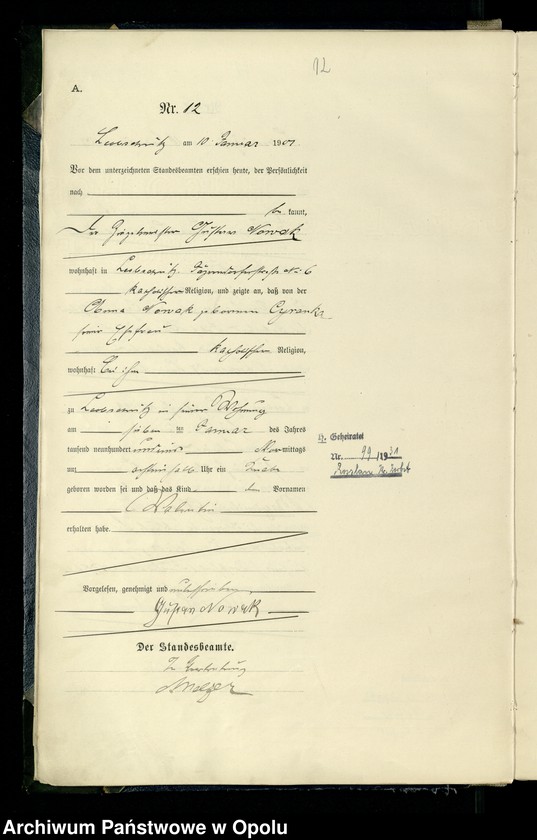 12
A.
Nr. 12
Leobschütz am 10 Januar 1901
Vor dem unterzeichneten Standesbeamten erschien heute, der Persönlichkeit
nach
be kannt,
Der Gustav Nowak
wohnhaft in Leobschütz, Jägerndorferstraße No 6
katholischer Religion, und zeigte an, daß von der
Anna Nowak geborenen Cyranka
seiner Ehefrau
katholischer Religion,
wohnhaft bei ihm
zu Leobschütz in seiner Wohnung
am sieben ten Januar des Jahres
tausend neunhundert und eins mittags
um Uhr ein Knabe
geboren worden sei und daß das Kind den Vornamen
Valentin
erhalten habe.
Vorgelesen, genehmigt und unterschrieben
Gustav Nowak
Der Standesbeamte.
In Vertretung
Geheiratet
Nr. 99/1931
Archiwum Państwowe w Opolu